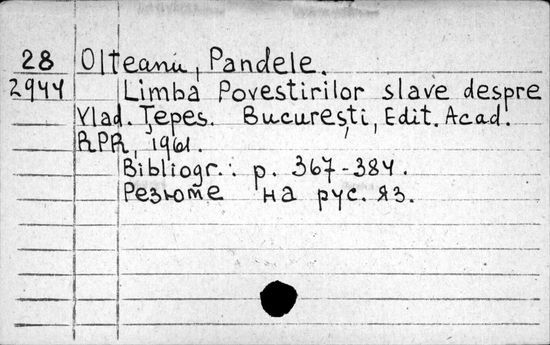 28 Olteanu, Pandele.
2944 Limba Povestirilor slave despre
Vlad. Ţepes. Bucureşti, Edit. Acad.
RPR, 1961.
Bibliogr.: p. 367-384.
Резюме на рус. яз.